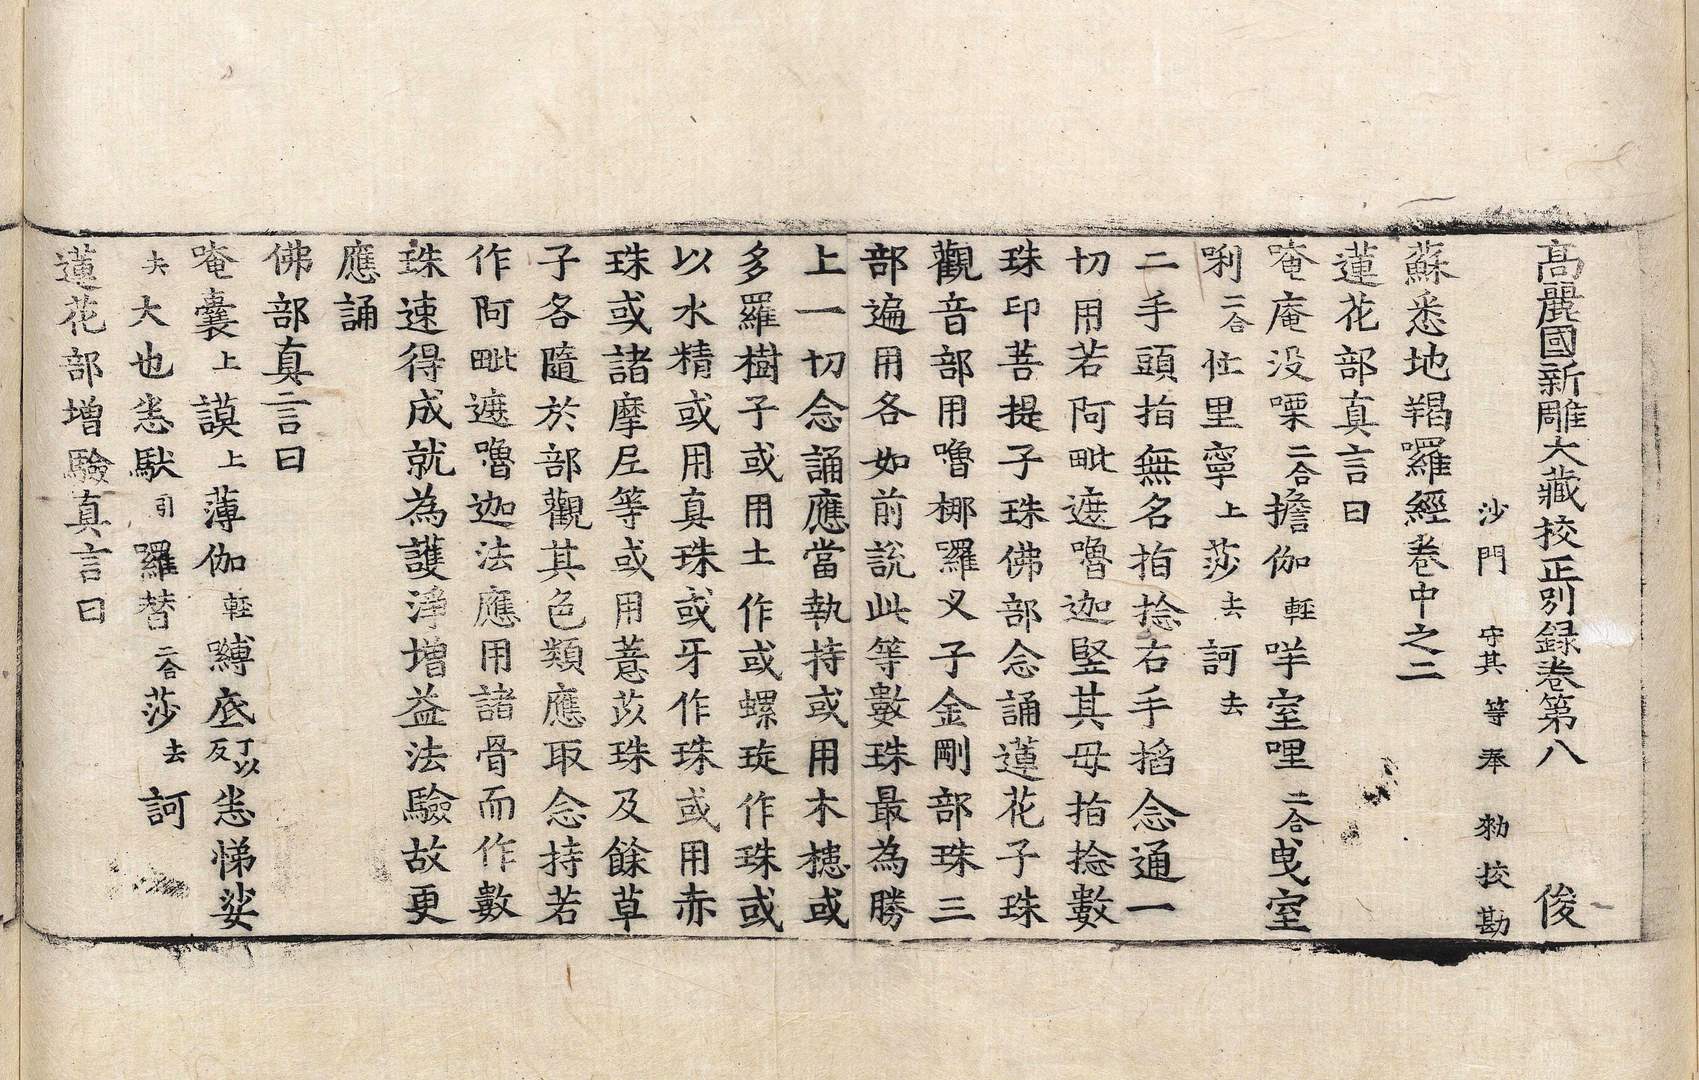 高麗國新雕大藏校正別録卷第八 俊
沙門 守其 等奉 勑挍勘
蘇悉地羯囉經卷中之二
蓮花部真言曰
唵庵没㗚二合擔伽輕咩室哩二合曵室
唎二合仡里寧上莎去訶去
二手頭指無名指捻右手搯念通一
切用若阿毗遮嚕迦竪其母指捻數
珠印菩提子珠佛部念誦蓮花子珠
觀音部用嚕梛囉叉子金剛部珠三
部遍用各如前說此等數珠最為勝
上一切念誦應當執持或用木槵或
多羅樹子或用土作或螺琁作珠或
以水精或用真珠或牙作珠或用赤
珠或諸摩尼等或用薏苡珠及餘草
子各隨於部觀其色類應取念持若
作阿毗遮嚕迦法應用諸骨而作數
珠速得成就為護淨增益法驗故更
應誦
佛部真言曰
唵囊上謨上薄伽輕嚩底丁以反悉悌娑
去大也悉馱引囉替二合莎去訶
蓮花部增驗真言曰